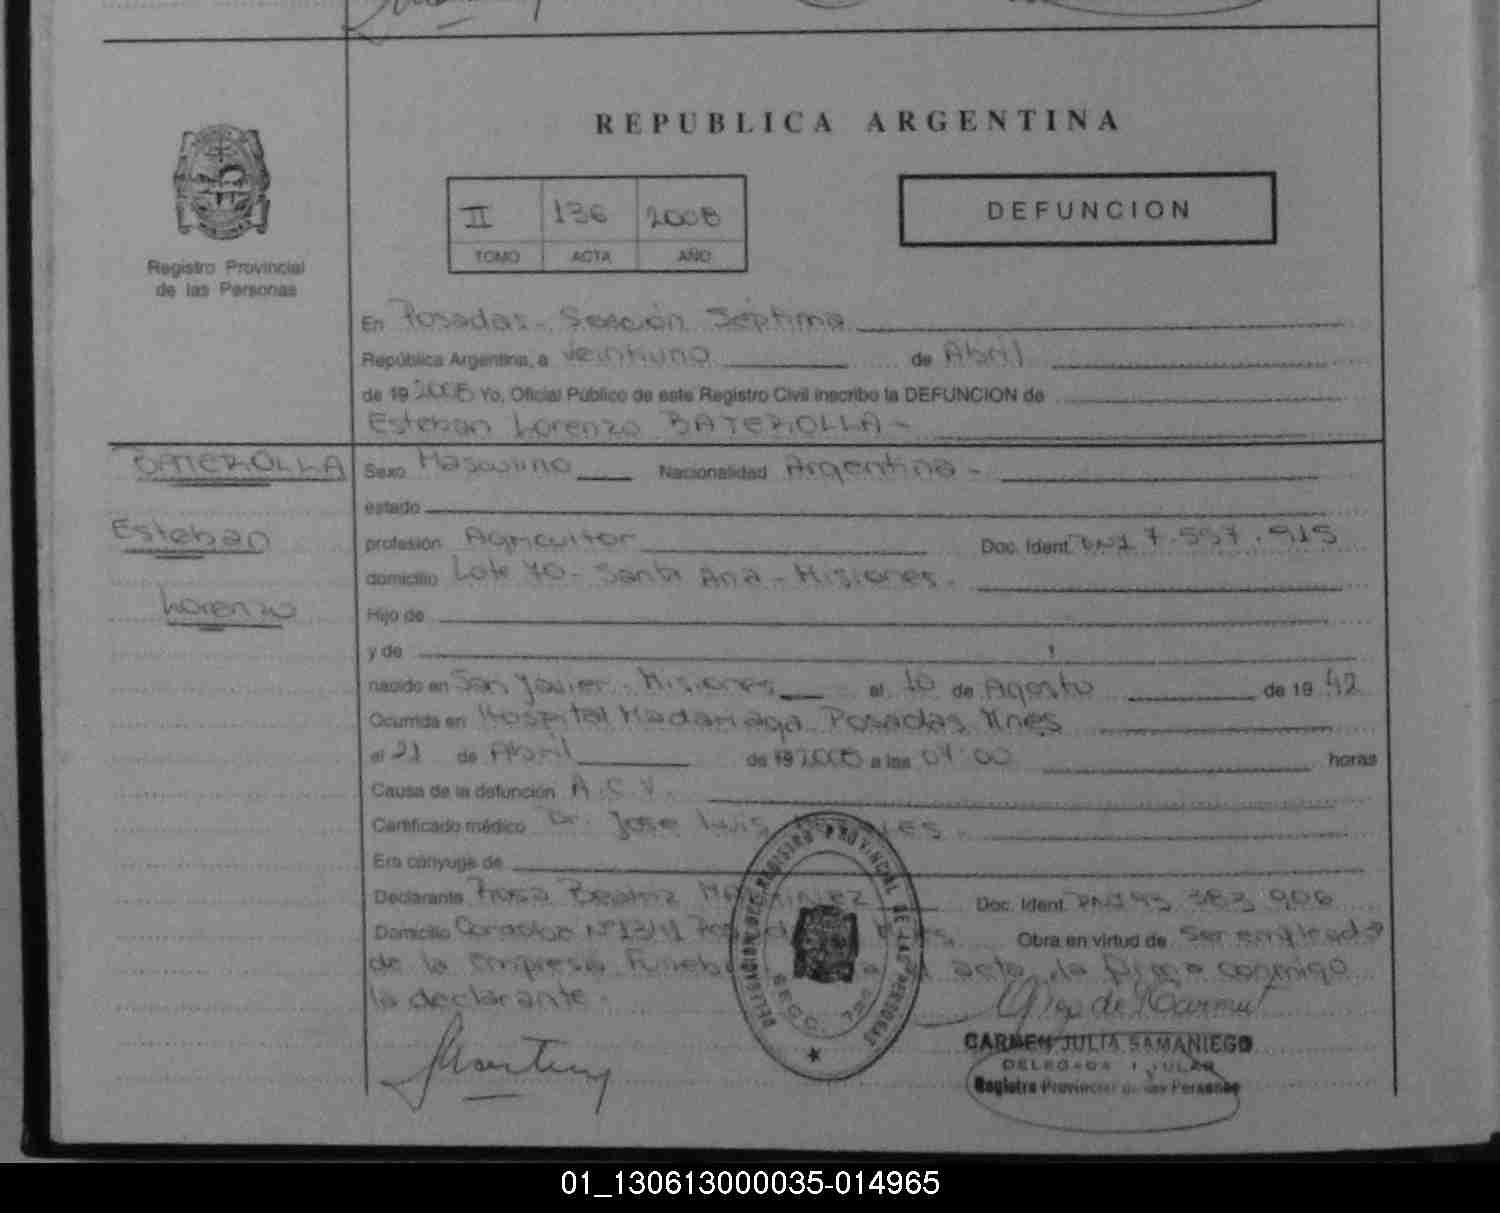 REPUBLICA ARGENTINA
Registro Provincial
de las Personas
II 136 2008
TOMO ACTA AÑO
DEFUNCION
En Posadas - Sección Séptima
República Argentina, a veintiuno de Abril
de 19 2008 Yo, Oficial Público de este Registro Civil inscribo la DEFUNCION de
Esteban Lorenzo BATEROLLA -
BATEROLLA
Esteban
Lorenzo
Sexo Masculino Nacionalidad Argentina -
estado
profesión Agricultor Doc. Ident. DNI 7.557.915
domicilio Lote 70 - Santa Ana - Misiones.
Hijo de
y de
nacido en San Javier - Misiones el 10 de Agosto de 19 42
Ocurrida en Hospital Madariaga Posadas Mnes
el 21 de Abril de 19 2008 a las 04:00 horas
Causa de la defunción A.C.V.
Certificado médico Dr. Jose Luis
Era cónyuge de
Declarante Rosa Beatriz MARTINEZ Doc. Ident. DNI 93 383 906
Domicilio Nº 1341 Obra en virtud de ser empleada
de la empresa acta, la firma conmigo
la declarante.
DELEGACION DEL REGISTRO PROVINCIAL DE LAS PERSONAS
SECC. 7
CARMEN JULIA SAMANIEGO
DELEGADA TITULAR
Registro Provincial de las Personas
01_130613000035-014965